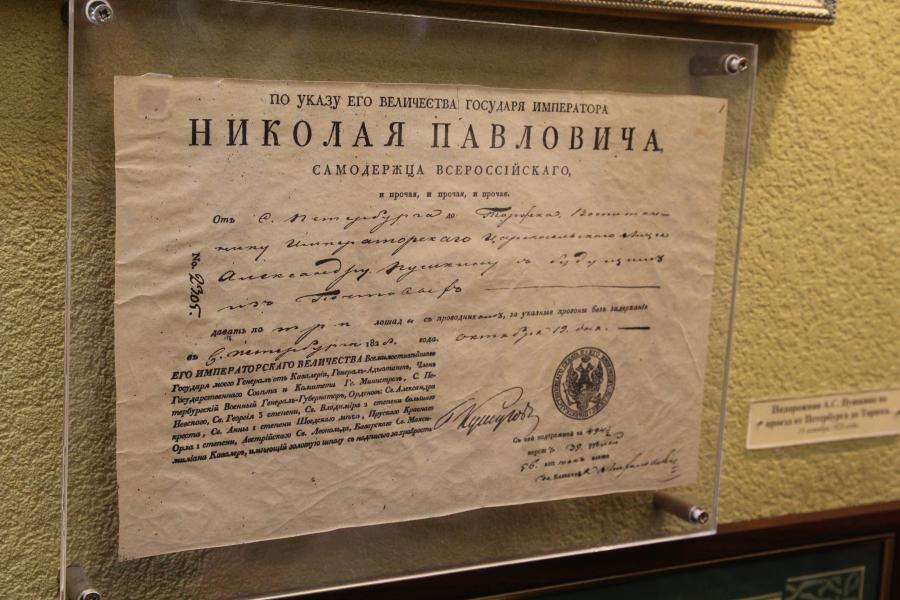 ПО УКАЗУ ЕГО ВЕЛИЧЕСТВА ГОСУДАРЯ ИМПЕРАТОРА
НИКОЛАЯ ПАВЛОВИЧА,
САМОДЕРЖЦА ВСЕРОССІЙСКАГО,
и прочая, и прочая, и прочая.
Отъ С. Петербурга до Торжка Воспитан-
нику Императорскаго Царскосельскаго Лицея
Александру Пушкину съ будущимъ
изъ
No. 2305.
давать по три лошади съ проводникомъ, за указные прогоны безъ задержанія
въ С. Петербурга 1828 года. октября 19 дня.
ЕГО ИМПЕРАТОРСКАГО ВЕЛИЧЕСТВА Всемилостивѣйшаго
Государя моего Генералъ отъ Кавалеріи, Генералъ-Адъютантъ, Членъ
Государственнаго Совѣта и Комитета Гг. Министровъ, С. Пе-
тербургскій Военный Генералъ-Губернаторъ, Орденовъ: Св. Александра
Невскаго, Св. Георгія 3 степени, Св. Владиміра 2 степени большаго
креста, Св. Анны 1 степени Шведскаго меча, Прускаго Краснаго
Орла 1 степени, Австрійскаго Св. Леопольда, Баварскаго Св. Макси-
миліана Кавалеръ, имѣющій золотую шпагу съ надписью за храбрость
Съ сей подорожной за
верстъ 39 рублей
56
за
Подорожная А.С. Пушкина на
проезд от Петербурга до Торжка.